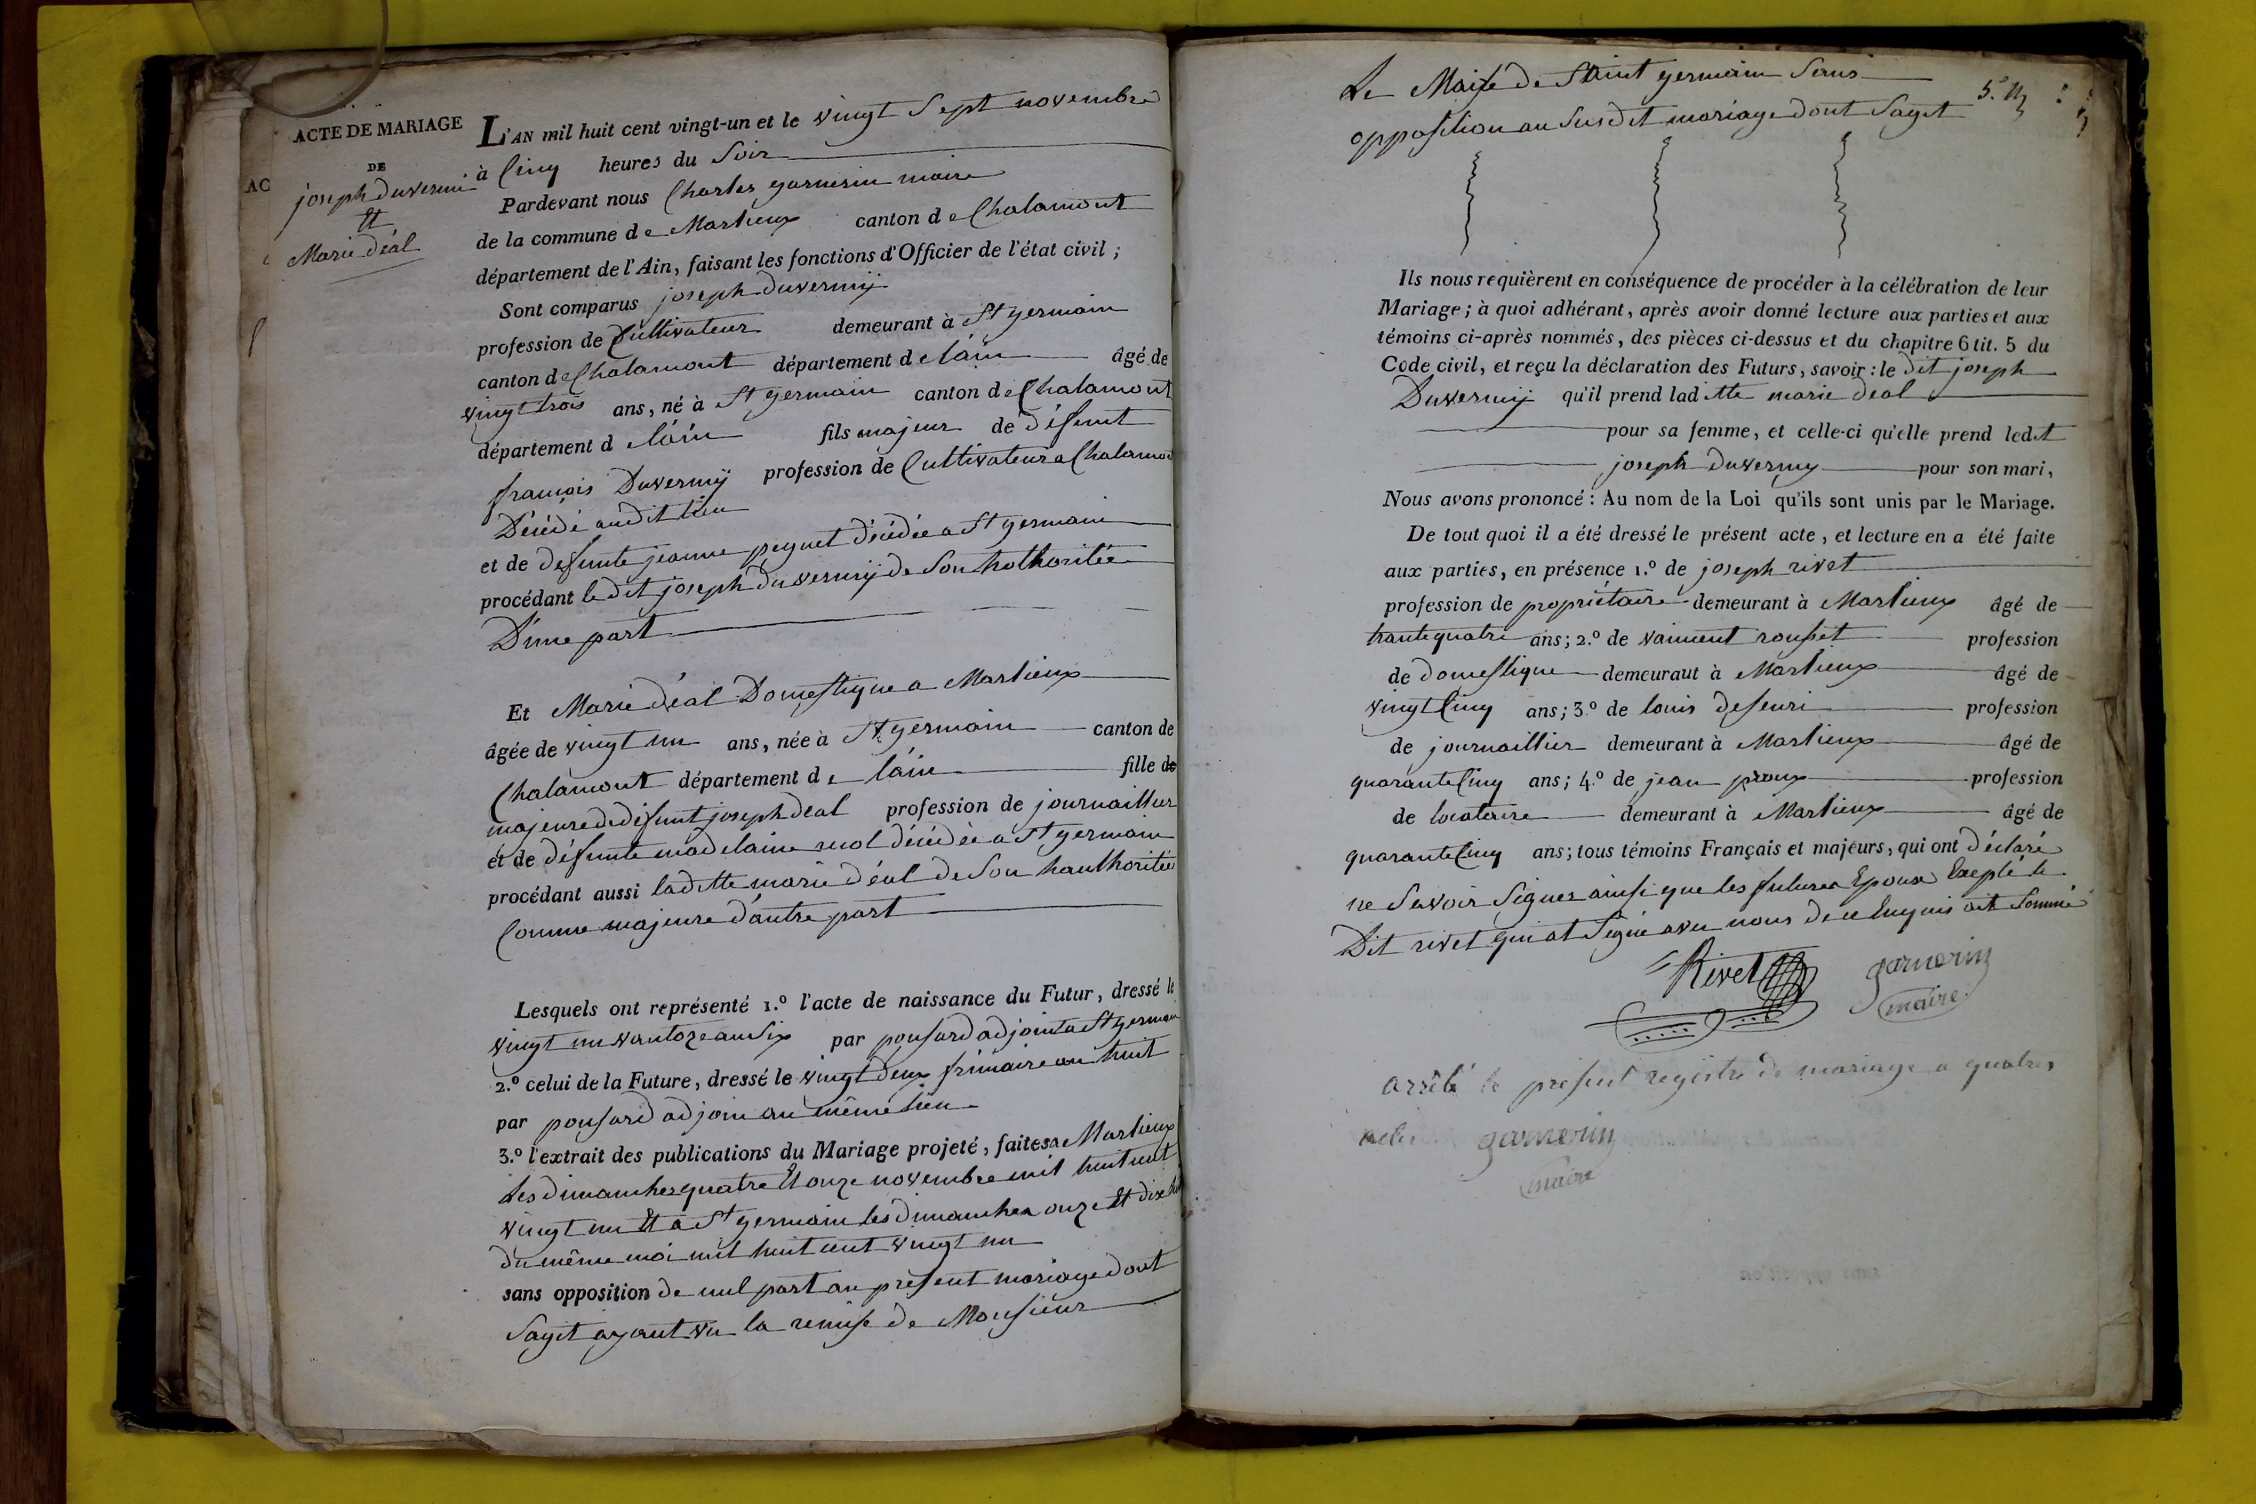 ACTE DE MARIAGE
DE
joseph Duverniÿ
Et
Marie déal
AC
L'AN mil huit cent vingt-un et le vingt Sept novembre
à Cinq heures du Soir
Pardevant nous Charles garnerin maire
de la commune de Marlieux canton de Chalamont
département de l'Ain, faisant les fonctions d'Officier de l'état civil ;
Sont comparus joseph Duverniÿ
profession de Cultivateur demeurant à St germain
canton de Chalamont département de láin âgé de
vingt trois ans, né à St germain canton de Chalamont
département de láin fils majeur de défunt
françois Duverniÿ profession de Cultivateur a Chalamon
Décédé audit lieu
et de defunte jeanne peguet décédée a St germain
procédant le dit joseph duverniÿ de Son hothoritée
D'une part
Et Marie déal Domestique a Marlieux
âgée de vingt un ans, née à St germain canton de
Chalamont département de láin fille de
majeure de défunt joseph déal profession de journaillier
et de défunte madelaine décédée a St germain
procédant aussi laditte marie déal de Son hauthoritée
Comme majeure dáutre part
Lesquels ont représenté 1.º l'acte de naissance du Futur, dressé le
vingt un vantoze an Six par ponsard adjoint a St germain
2.º celui de la Future, dressé le vingt deux frimaire an huit
par ponsard adjoin au même lieu
3.º l'extrait des publications du Mariage projeté, faites a Marlieux
Les dimanches quatre Et onze novembre mil huit cent
vingt un Et a St germain les dimanches onze Et dix huit
du même moi mil huit cent vingt un
sans opposition de nul part au présent mariage dont
Sagit ayant vu la remise de Monsieur
Le Maire de Saint germain Sans
opposition au Susdit mariage dont Sagit
Ils nous requièrent en conséquence de procéder à la célébration de leur
Mariage ; à quoi adhérant, après avoir donné lecture aux parties et aux
témoins ci-après nommés, des pièces ci-dessus et du chapitre 6 tit. 5 du
Code civil, et reçu la déclaration des Futurs, savoir : le dit joseph
Duverniÿ qu'il prend laditte marie déal
pour sa femme, et celle-ci qu'elle prend ledit
joseph Duverniy pour son mari,
Nous avons prononcé : Au nom de la Loi qu'ils sont unis par le Mariage.
De tout quoi il a été dressé le présent acte, et lecture en a été faite
aux parties, en présence 1.º de joseph rivet
profession de propriétaire demeurant à Marlieux âgé de
trante quatre ans ; 2.º de vaincent rousset profession
de domestique demeuraut à Marlieux âgé de
vingt Cinq ans ; 3.º de louis defeuri profession
de journaillier demeurant à Marlieux âgé de
quarante Cinq ans ; 4.º de jean proux profession
de locataire demeurant à Marlieux âgé de
quarante Cinq ans ; tous témoins Français et majeurs, qui ont déclaré
ne Savoir Signer ainsi que les futures Epoux Exepté le
Dit rivet qui at Signé avec nous de ce Enquis ert Sommé
Rivet garnerin
maire
arrêté le present registre de mariage a quatre
garnerin
maire